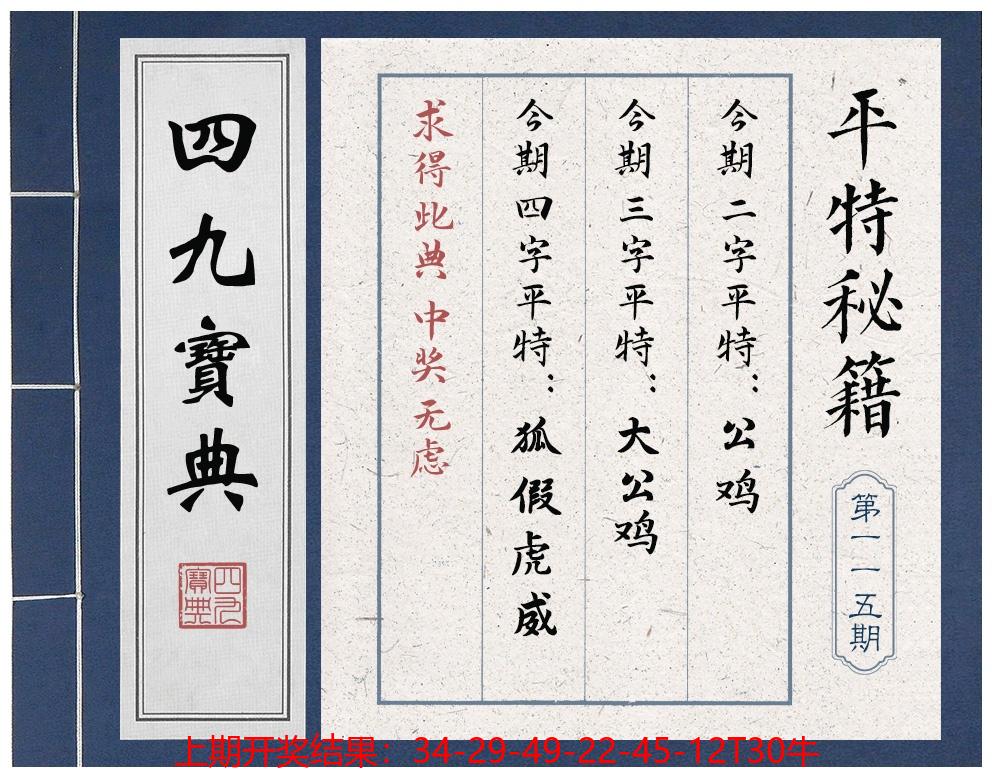 平特秘籍
第一一五期
今期二字平特：公鸡
今期三字平特：大公鸡
今期四字平特：狐假虎威
求得此典 中奖无虑
四九寶典
四九寶典
上期开奖结果：34-29-49-22-45-12T30牛